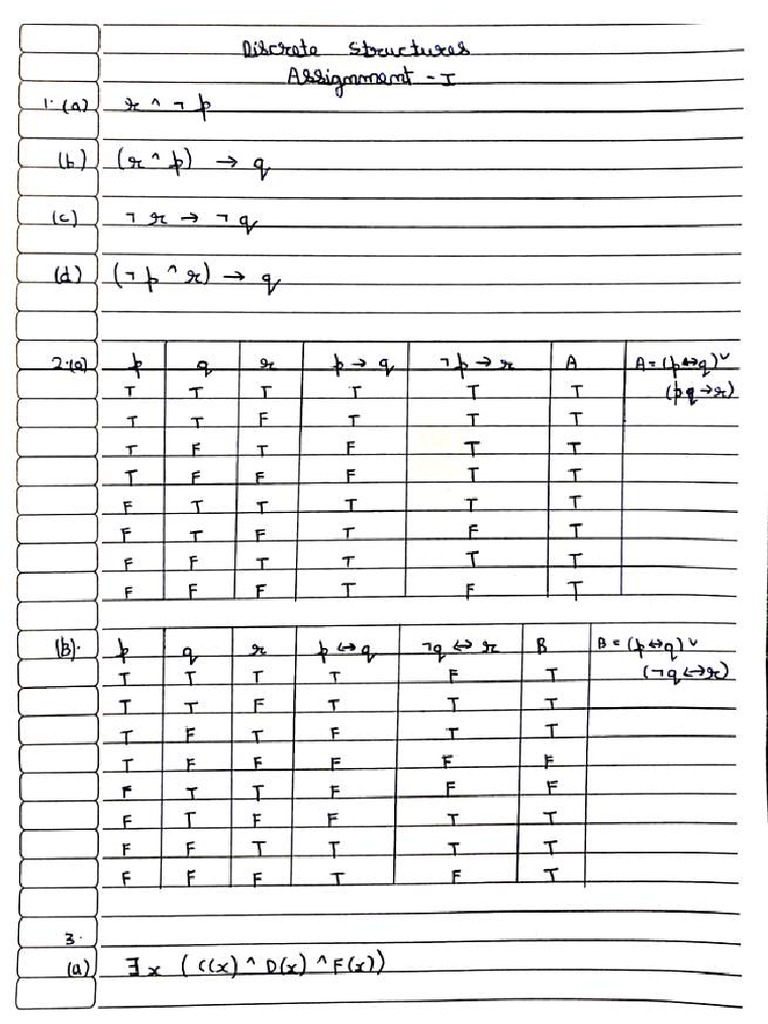 Discrete Structures
Assignment - I
1. (a) r ^ ¬ p
(b) (r ^ p) → q
(c) ¬ r → ¬ q
(d) (¬ p ^ r) → q
2.(a) p q r p → q ¬p → r A A = (p↔q) ∨
T T T T T T (pq → r)
T T F T T T
T F T F T T
T F F F T T
F T T T T T
F T F T F T
F F T T T T
F F F T F T
(B). p q r p ↔ q ¬q ↔ r B B = (p↔q) ∨
T T T T F T (¬q ↔ r)
T T F T T T
T F T F T T
T F F F F F
F T T F F F
F T F F T T
F F T T T T
F F F T F T
3.
(a) ∃x (C(x) ^ D(x) ^ F(x))